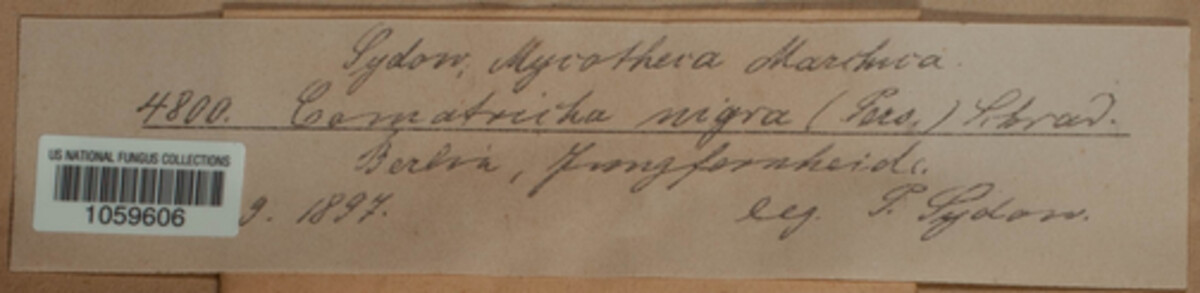 Sydow, Mycotheca Marchica.
4800. Comatricha nigra (Pers.) Schrad.
Berlin, Jungfernheide.
9. 1897. leg. P. Sydow.
US NATIONAL FUNGUS COLLECTIONS
1059606